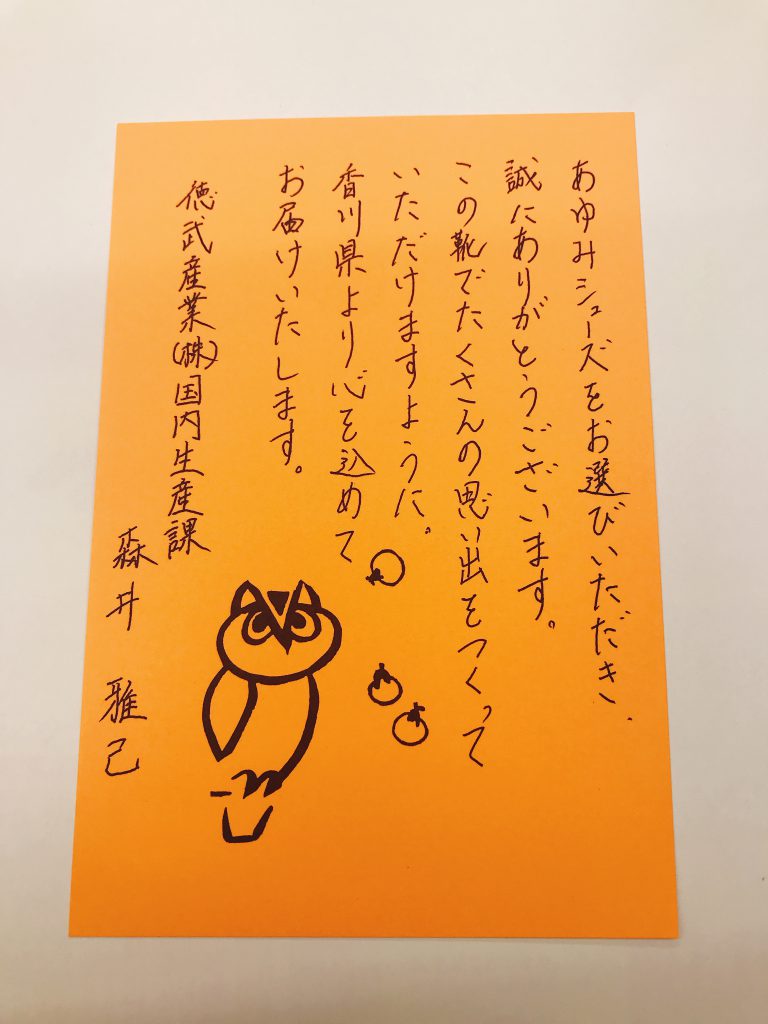 あゆみシューズをお選びいただき、
誠にありがとうございます。
この靴でたくさんの思い出をつくって
いただけますように。
香川県より心を込めて
お届けいたします。
徳武産業(株)国内生産課
森井 雅己